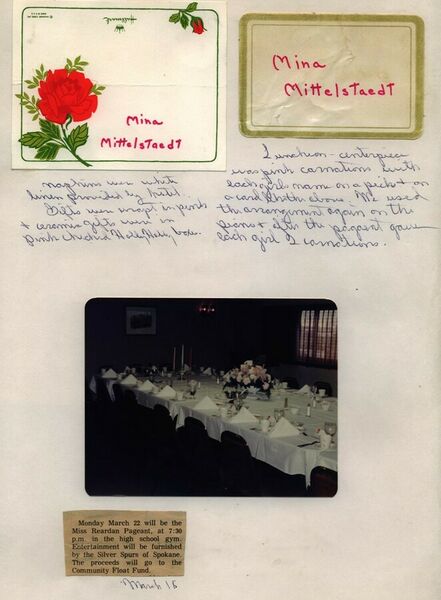 Hallmark
Mina
Mittelstaedt
Mina
Mittelstaedt
napkins were white
linen provided by hotel.
Gifts were wrapt in pink
+ ceramic gifts were in
pink checked Holly Hobby boxes.
Luncheon - centerpiece
was pink carnations with
each girls name on a pick + on
a card like the above. We used
the arrangement again on the
piano + after the pageant gave
each girl 2 carnations.
Monday March 22 will be the
Miss Reardan Pageant, at 7:30
p.m. in the high school gym.
Entertainment will be furnished
by the Silver Spurs of Spokane.
The proceeds will go to the
Community Float Fund.
March 18